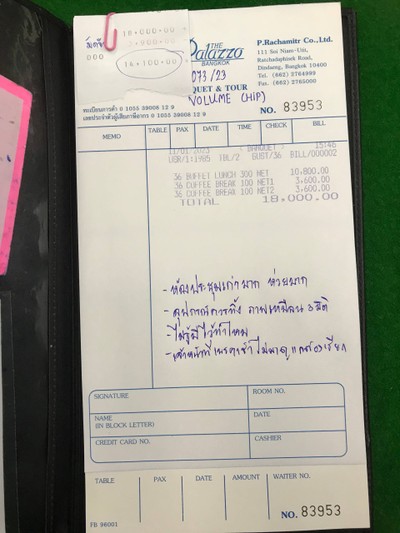 18,000.00 +
3,900.00 +
14,100.00 +
000
THE
Palazzo
BANGKOK
P.Rachamitr Co., Ltd.
111 Soi Nam-Unit,
Ratchadaphisek Road,
Dindaeng, Bangkok 10400
Tel. (662) 2764999
Fax. (662) 2765000
073/23
QUET & TOUR
VOLUME (HIP)
ทะเบียนการค้า 0 1055 39008 12 9
เลขประจำตัวผู้เสียภาษีอากร 0 1055 39008 12 9
NO. 83953
MEMO TABLE PAX DATE TIME CHECK BILL
11/01/2023 * BANQUET * 15:46
USR/1:1985 TBL/2 GUST/36 BILL/000002
36 BUFFET LUNCH 300 NET 10,800.00
36 COFFEE BREAK 100 NET1 3,600.00
36 COFFEE BREAK 100 NET2 3,600.00
TOTAL 18,000.00
- ห้องประชุมเก่ามาก ห่วยมาก
- อุปกรณ์ควรทิ้ง ภาพเหมือน 3 มิติ
- ไม่รู้มีไว้ทำไหม
- เจ้าหน้าที่เบรคเช้าไม่มาดูแลต้องเรียก
SIGNATURE ROOM NO.
NAME DATE
(IN BLOCK LETTER)
CREDIT CARD NO. CASHIER
TABLE PAX DATE AMOUNT WAITER NO.
NO. 83953
FB 96001